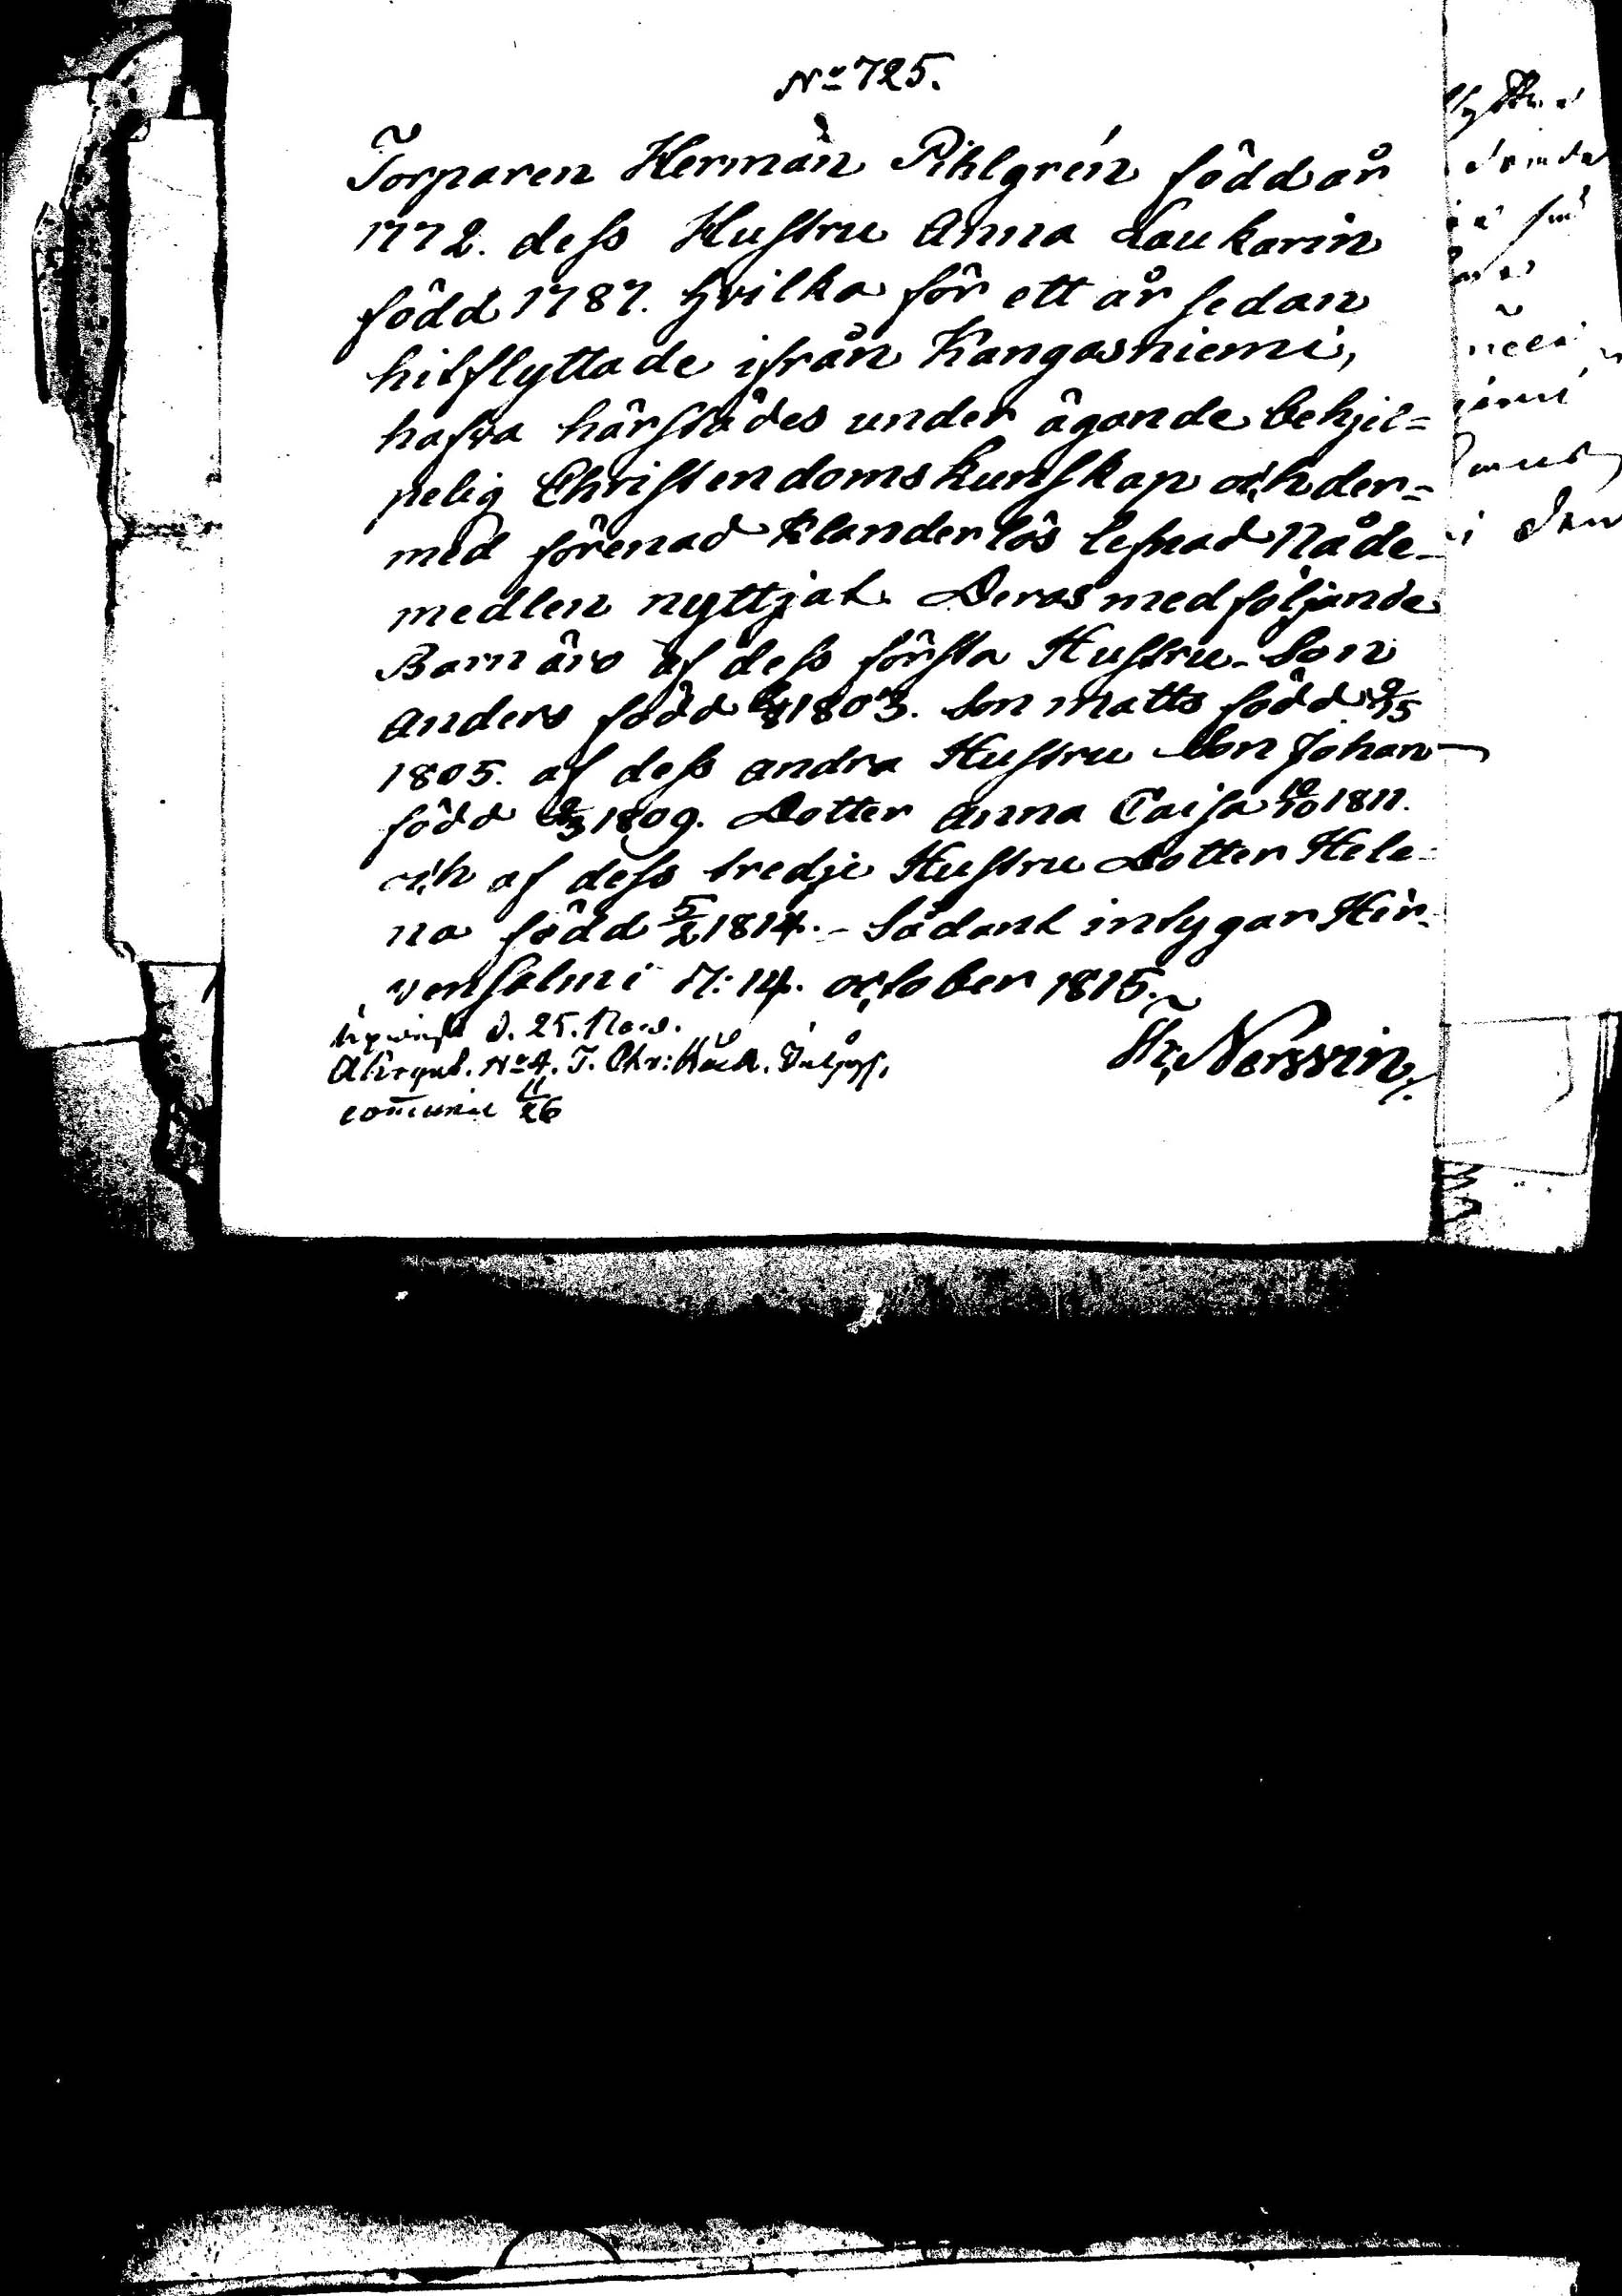 No 725.
Torparen Herman Pihlgrén född år
1772. dess Hustru Anna Laukarin
född 1787. hvilka för ett år sedan
hitflyttade ifrån Kangasniemi,
hafva härstädes under ägande behjel=
pelig Christendomskunskap och der=
med förenad klanderlös lefnad Nåde-
medlen nyttjat. Deras medföljande
Barn äro af dess första Hustru. Son
Anders född 1803. Son Matts född 9/5
1805. af dess andra Hustru Son Johan
född 1809. Dotter Anna Caisa 1811.
och af dess tredje Hustru Dotter Hele=
na född 5/2 1814. - Sådant intygar Hir-
vensalmi d: 14. october 1815.
d. 25. Nov.
No 4. T. Chr:
11/26